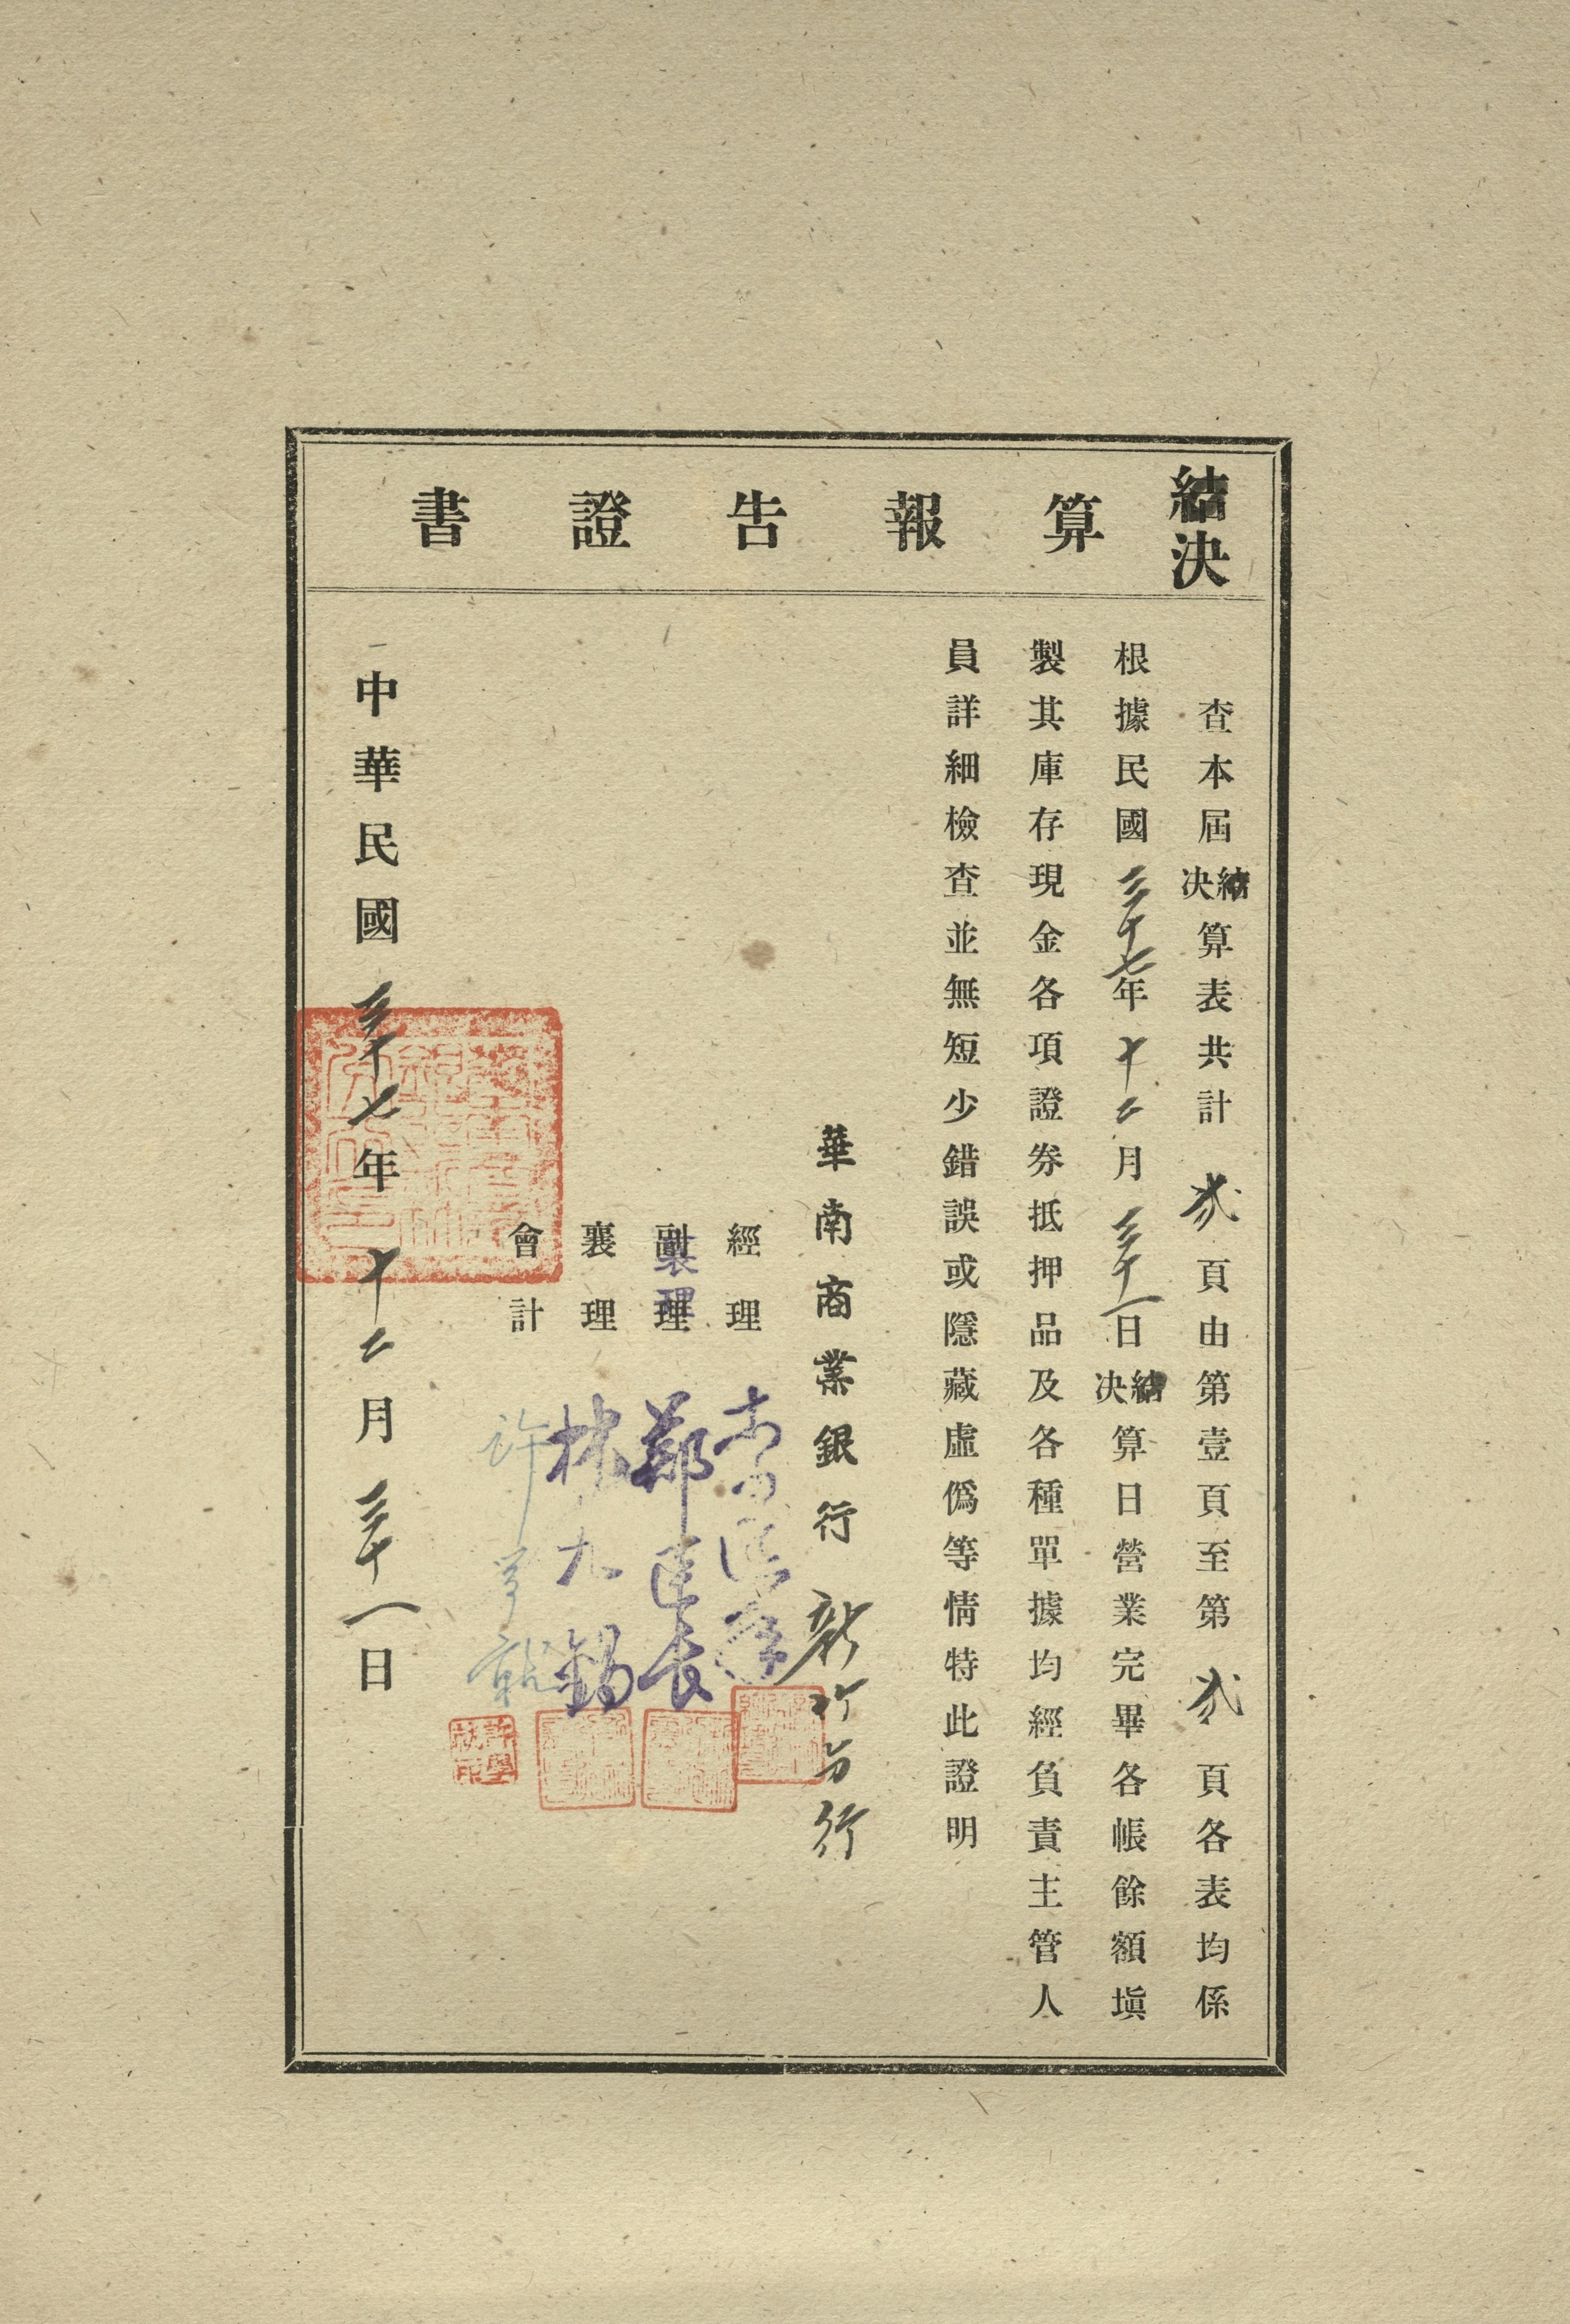 結決算報告證書
查本屆結決算表共計貳頁由第壹頁至第貳頁各表均係
根據民國三十七年十二月三十一日結決算日營業完畢各帳餘額塡
製其庫存現金各項證券抵押品及各種單據均經負責主管人
員詳細檢查並無短少錯誤或隱藏虛僞等情特此證明
華南商業銀行新竹分行
經理
副理 襄理 鄭
襄理 林九錫
會計 許
中華民國三十七年十二月三十一日